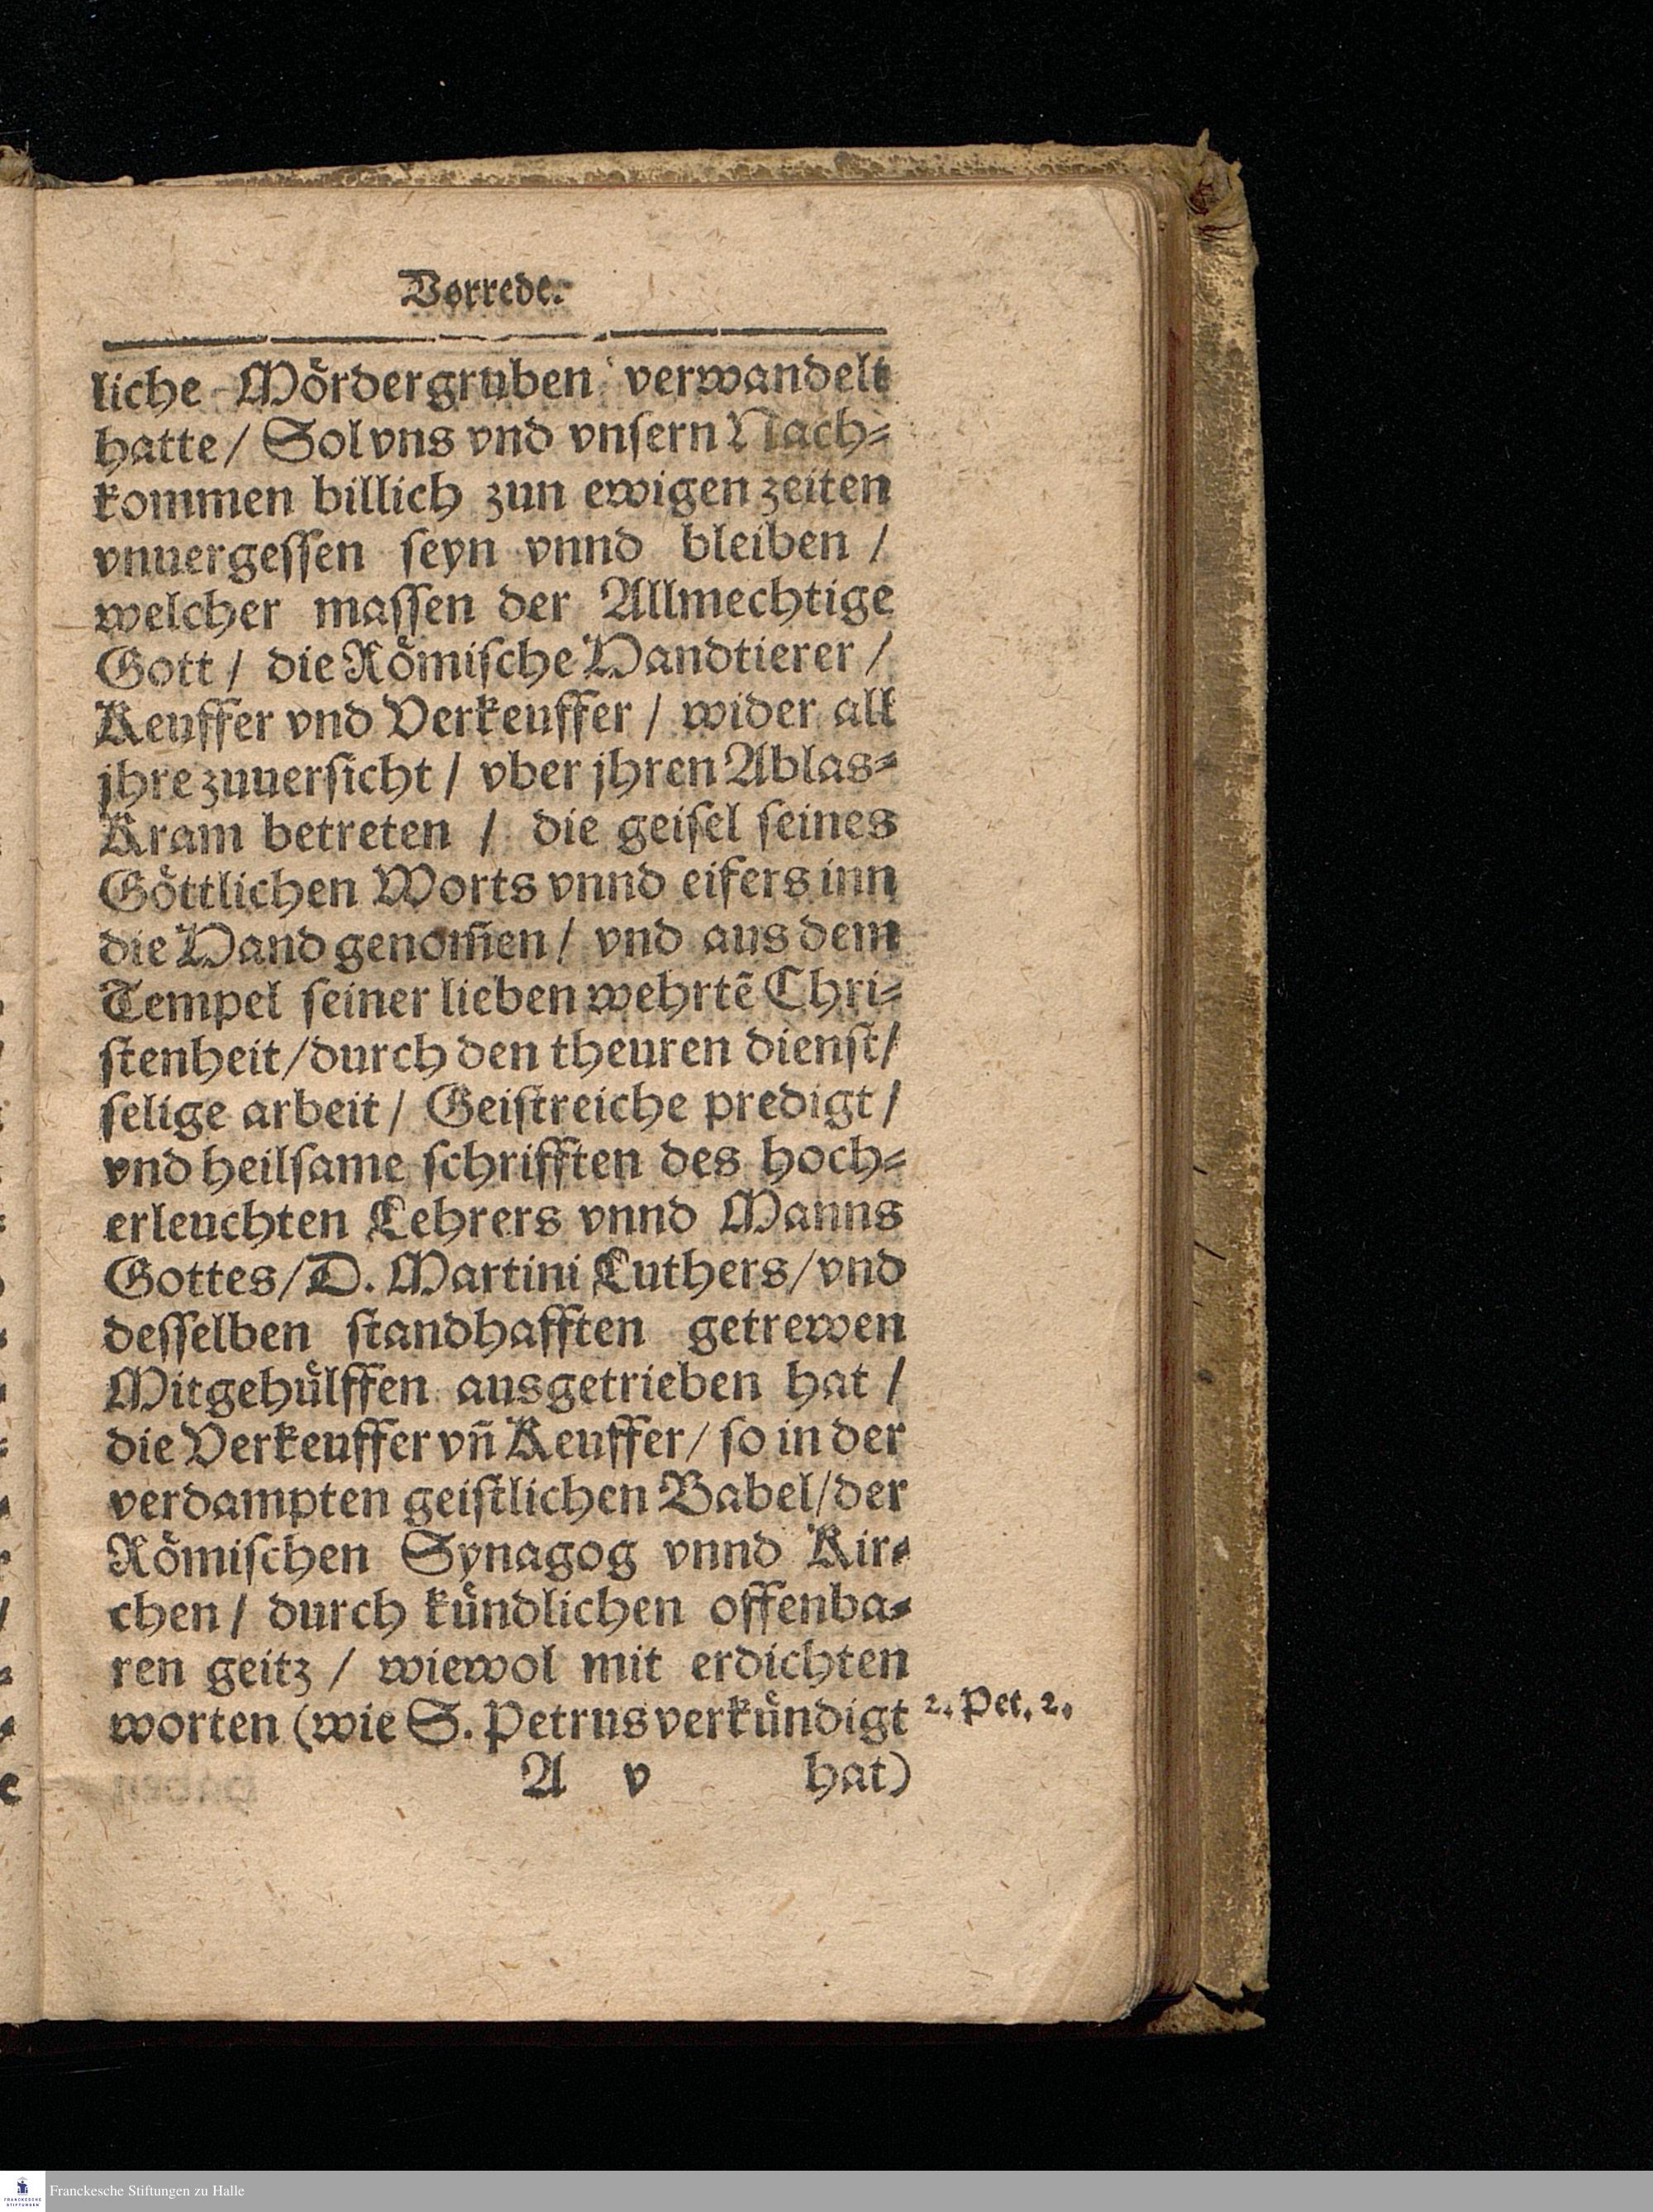 Vorrede.
liche Mördergruben verwandelt
hatte / Sol vns vnd vnsern Nach⸗
kommen billich zun ewigen zeiten
vnuergeſſen ſeyn vnnd bleiben /
welcher maſſen der Allmechtige
Gott / die Römiſche Handtierer /
Keuffer vnd Verkeuffer / wider all
jhre zuuerſicht / vber jhren Ablas⸗
Kram betreten / die geiſel ſeines
Göttlichen Worts vnnd eifers inn
die Hand genom̃en / vnd aus dem
Tempel ſeiner lieben wehrtẽ Chri⸗
ſtenheit / durch den theuren dienſt /
ſelige arbeit / Geiſtreiche predigt /
vnd heilſame ſchrifften des hoch⸗
erleuchten Lehrers vnnd Manns
Gottes / D. Martini Luthers / vnd
deſſelben ſtandhafften getrewen
Mitgehülffen ausgetrieben hat /
die Verkeuffer vñ Keuffer / ſo in der
verdampten geiſtlichen Babel / der
Römiſchen Synagog vnnd Kir⸗
chen / durch kündlichen offenba⸗
ren geitz / wiewol mit erdichten
worten (wie S. Petrus verkündigt
2. Pet. 2.
A v hat)
FRANCKESCHE STIFTUNGEN
Franckesche Stiftungen zu Halle